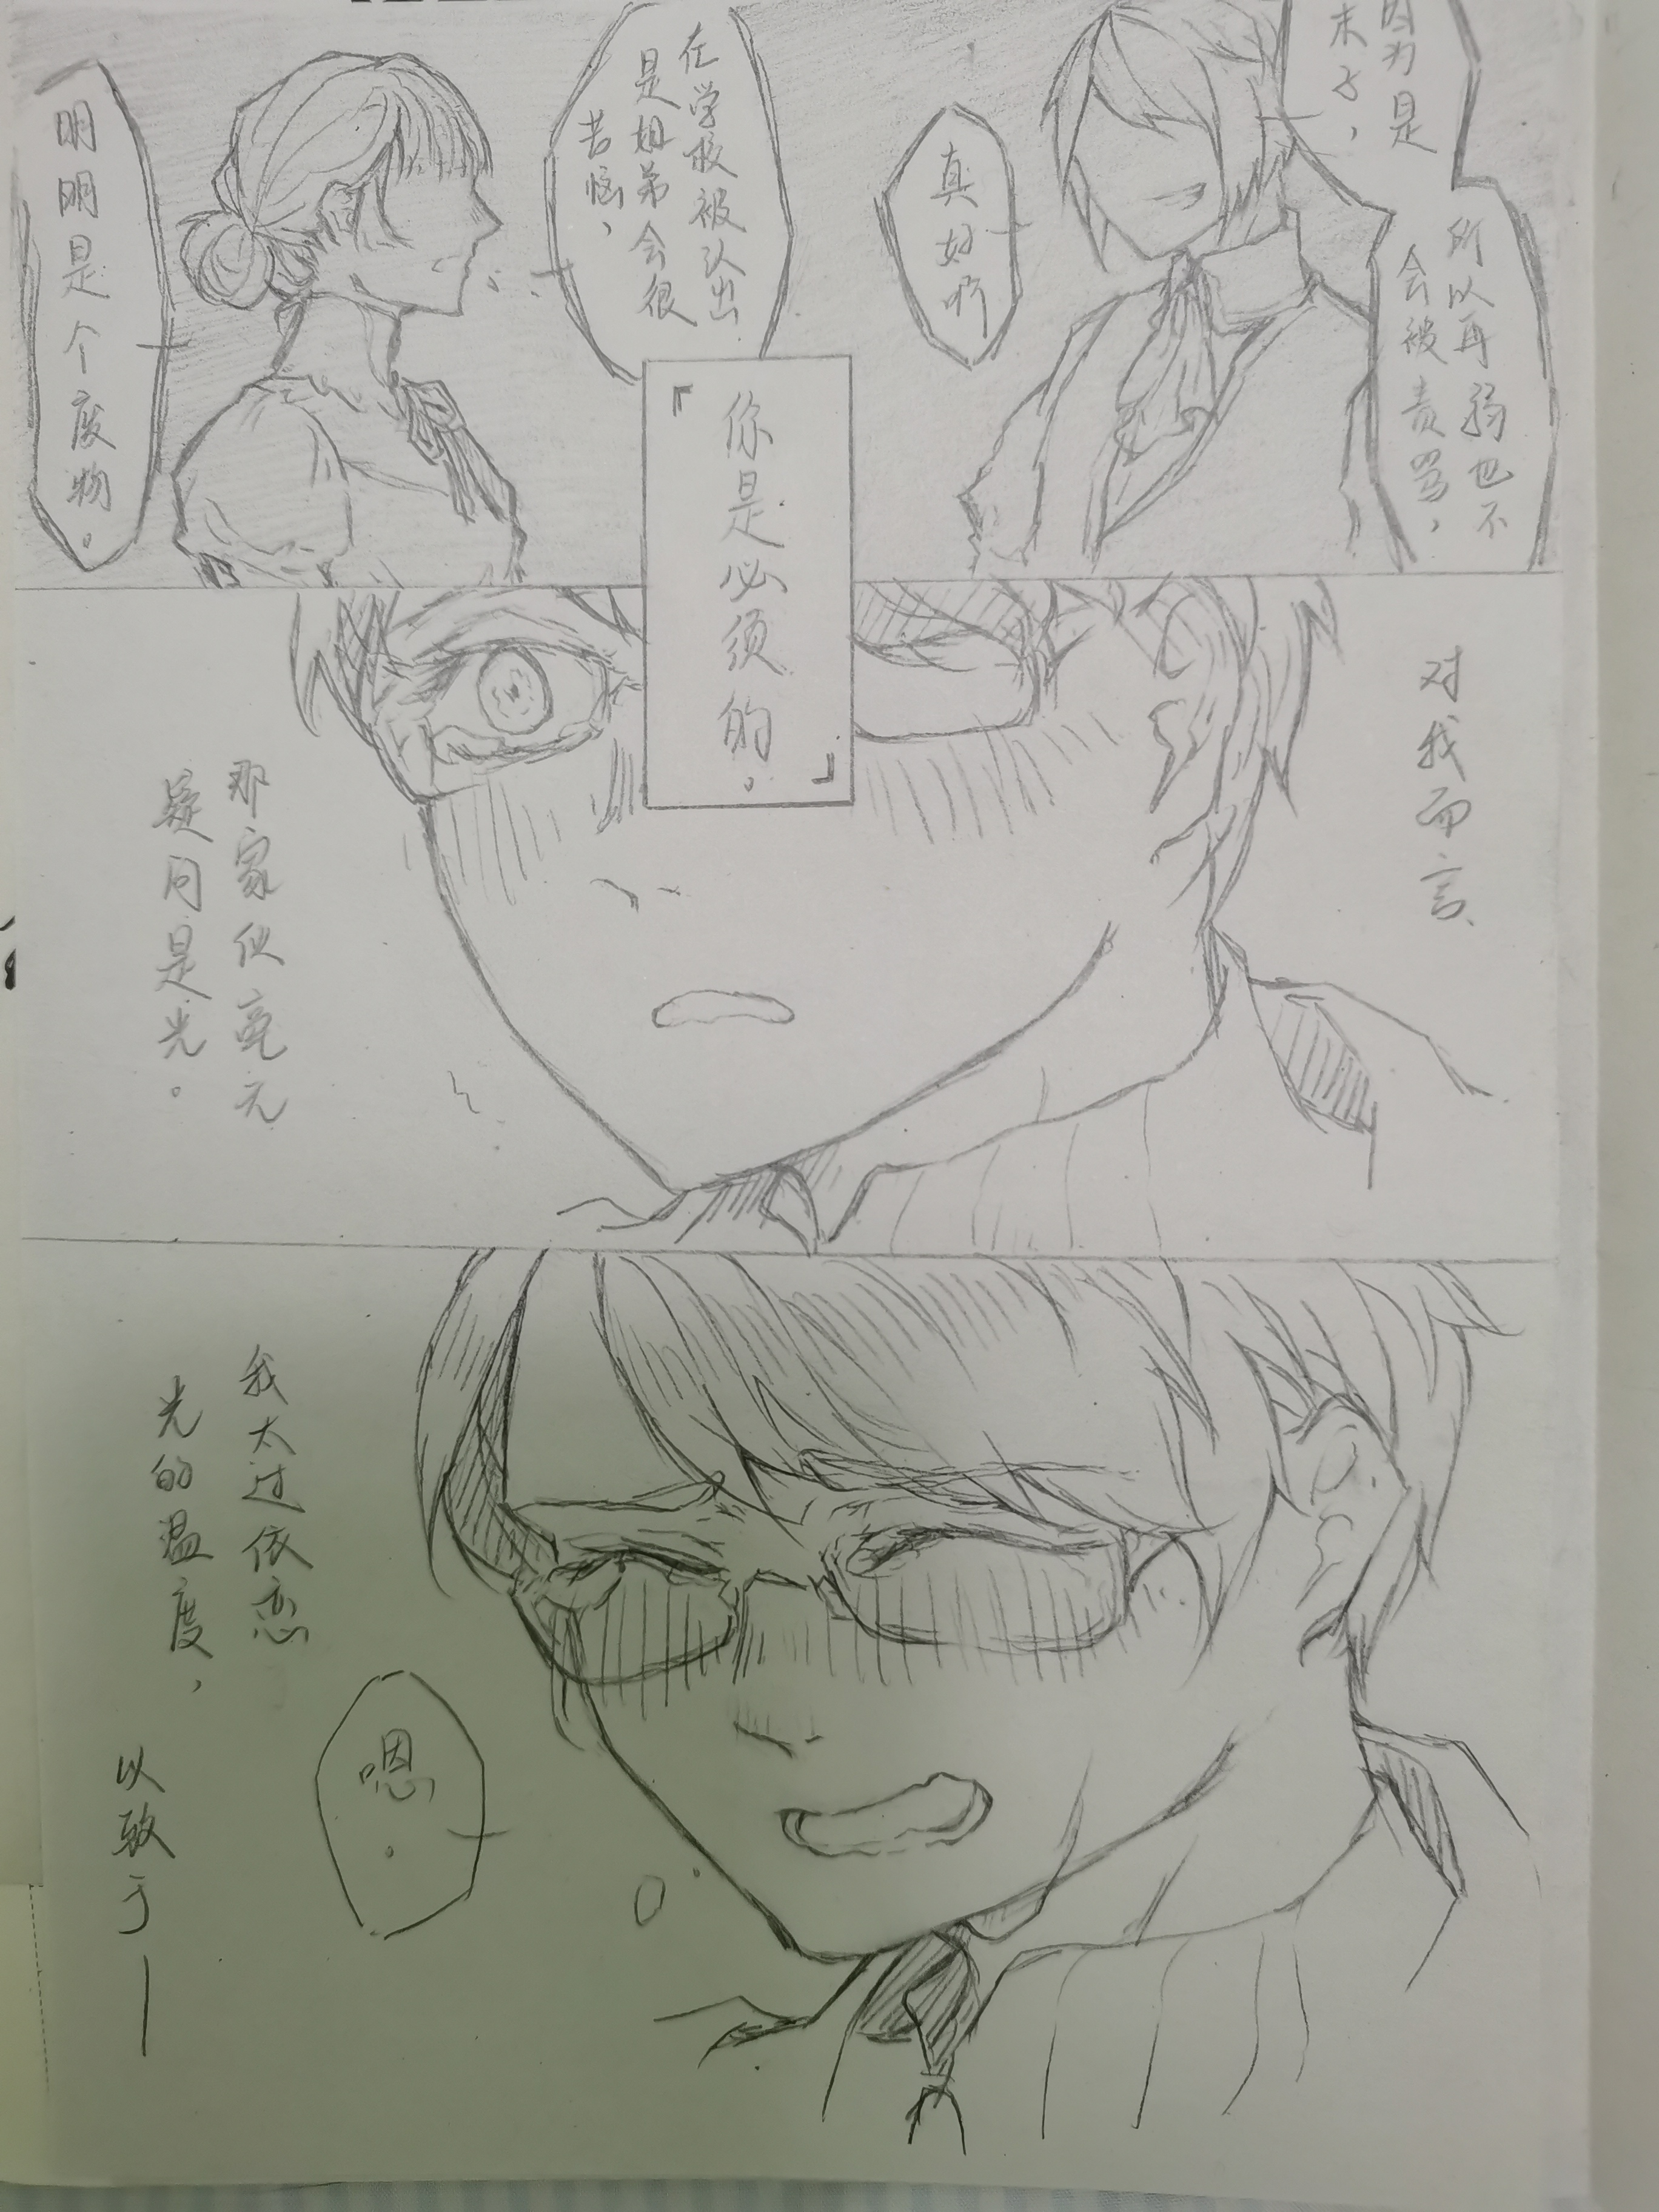 因为是
末子，
所以再弱也不
会被责骂，
真好啊
在学校被认出
是姐弟会很
苦恼，
明明是个废物。
『你是必须的。』
对我而言
那家伙毫无
疑问是光。
我太过依恋
光的温度，
以致于—
嗯。